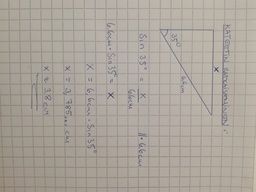 x
35°
6,6cm
sin 35° = x / 6,6cm ||·6,6cm
6,6cm · sin 35° = x
x = 6,6cm · sin 35°
x = 3,785... cm
x ≈ 3,8 cm